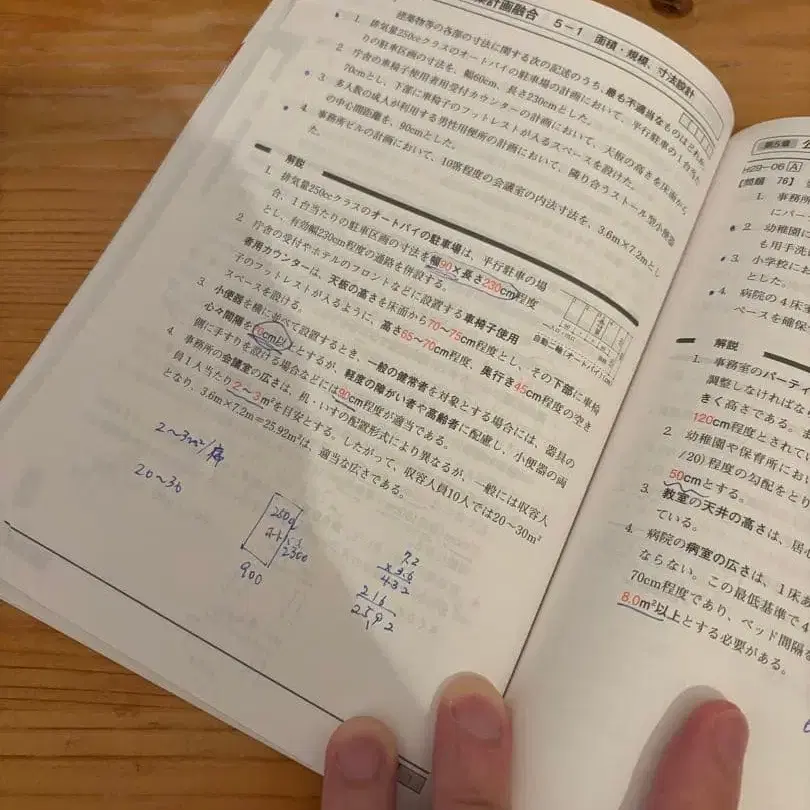 計画融合 5－1 面積・規模、寸法設計
建築物等の各部の寸法に関する次の記述のうち、最も不適当なものはどれか。
1. 排気量250ccクラスのオートバイの駐車場の計画において、平行駐車の1台当た
りの駐車区画の寸法を、幅60cm、長さ230cmとした。
2. 庁舎の車椅子使用者用受付カウンターの計画において、天板の高さを床面から
70cmとし、下部に車椅子のフットレストが入るスペースを設けた。
3. 多人数の成人が利用する男性用便所の計画において、隣り合うストール型小便器
の中心間距離を、90cmとした。
4. 事務所ビルの計画において、10席程度の会議室の内法寸法を、3.6m×7.2mとし
た。
解説
1. 排気量250ccクラスのオートバイの駐車場は、平行駐車の場
合、1台当たりの駐車区画の寸法を幅90×長さ230cm程度
とし、有効幅230cm程度の通路を併設する。
2. 庁舎の受付やホテルのフロントなどに設置する車椅子使用
者用カウンターは、天板の高さを床面から70～75cm程度とし、その下部に車椅
子のフットレストが入るように、高さ65～70cm程度、奥行き45cm程度の空き
スペースを設ける。
自動二輪(オートバイ)(cm)
3. 小便器を横に並べて設置するとき、一般の健常者を対象とする場合には、器具の
心々間隔を cm以上とするが、軽度の障がい者や高齢者に配慮し、小便器の両
側に手すりを設ける場合などには90cm程度が適当である。
4. 事務所の会議室の広さは、机・いすの配置形式により異なるが、一般には収容人
員1人当たり2～3m²を目安とする。したがって、収容人員10人では20～30m²
となり、3.6m×7.2m＝25.92m²は、適当な広さである。
2～3m²/席
20～30
250cc
オートバイ
2300
900
7.2
×3.6
432
216
2592
第5章
H29－06 A
【問題 76】
1. 事務所
にパー
2. 幼稚園に
も用手洗
3. 小学校にお
とした。
4. 病院の4床
ペースを確保
解説
1. 事務室のパーティ
調整しなければな
きく高さである。
120cm程度とされてい
2. 幼稚園や保育所におい
/20)程度の勾配をとり
50cmとする。
3. 教室の天井の高さは、居
ている。
4. 病院の病室の広さは、1床あ
ならない。この最低基準で4
70cm程度であり、ベッド間隔
8.0m²以上とする必要がある。